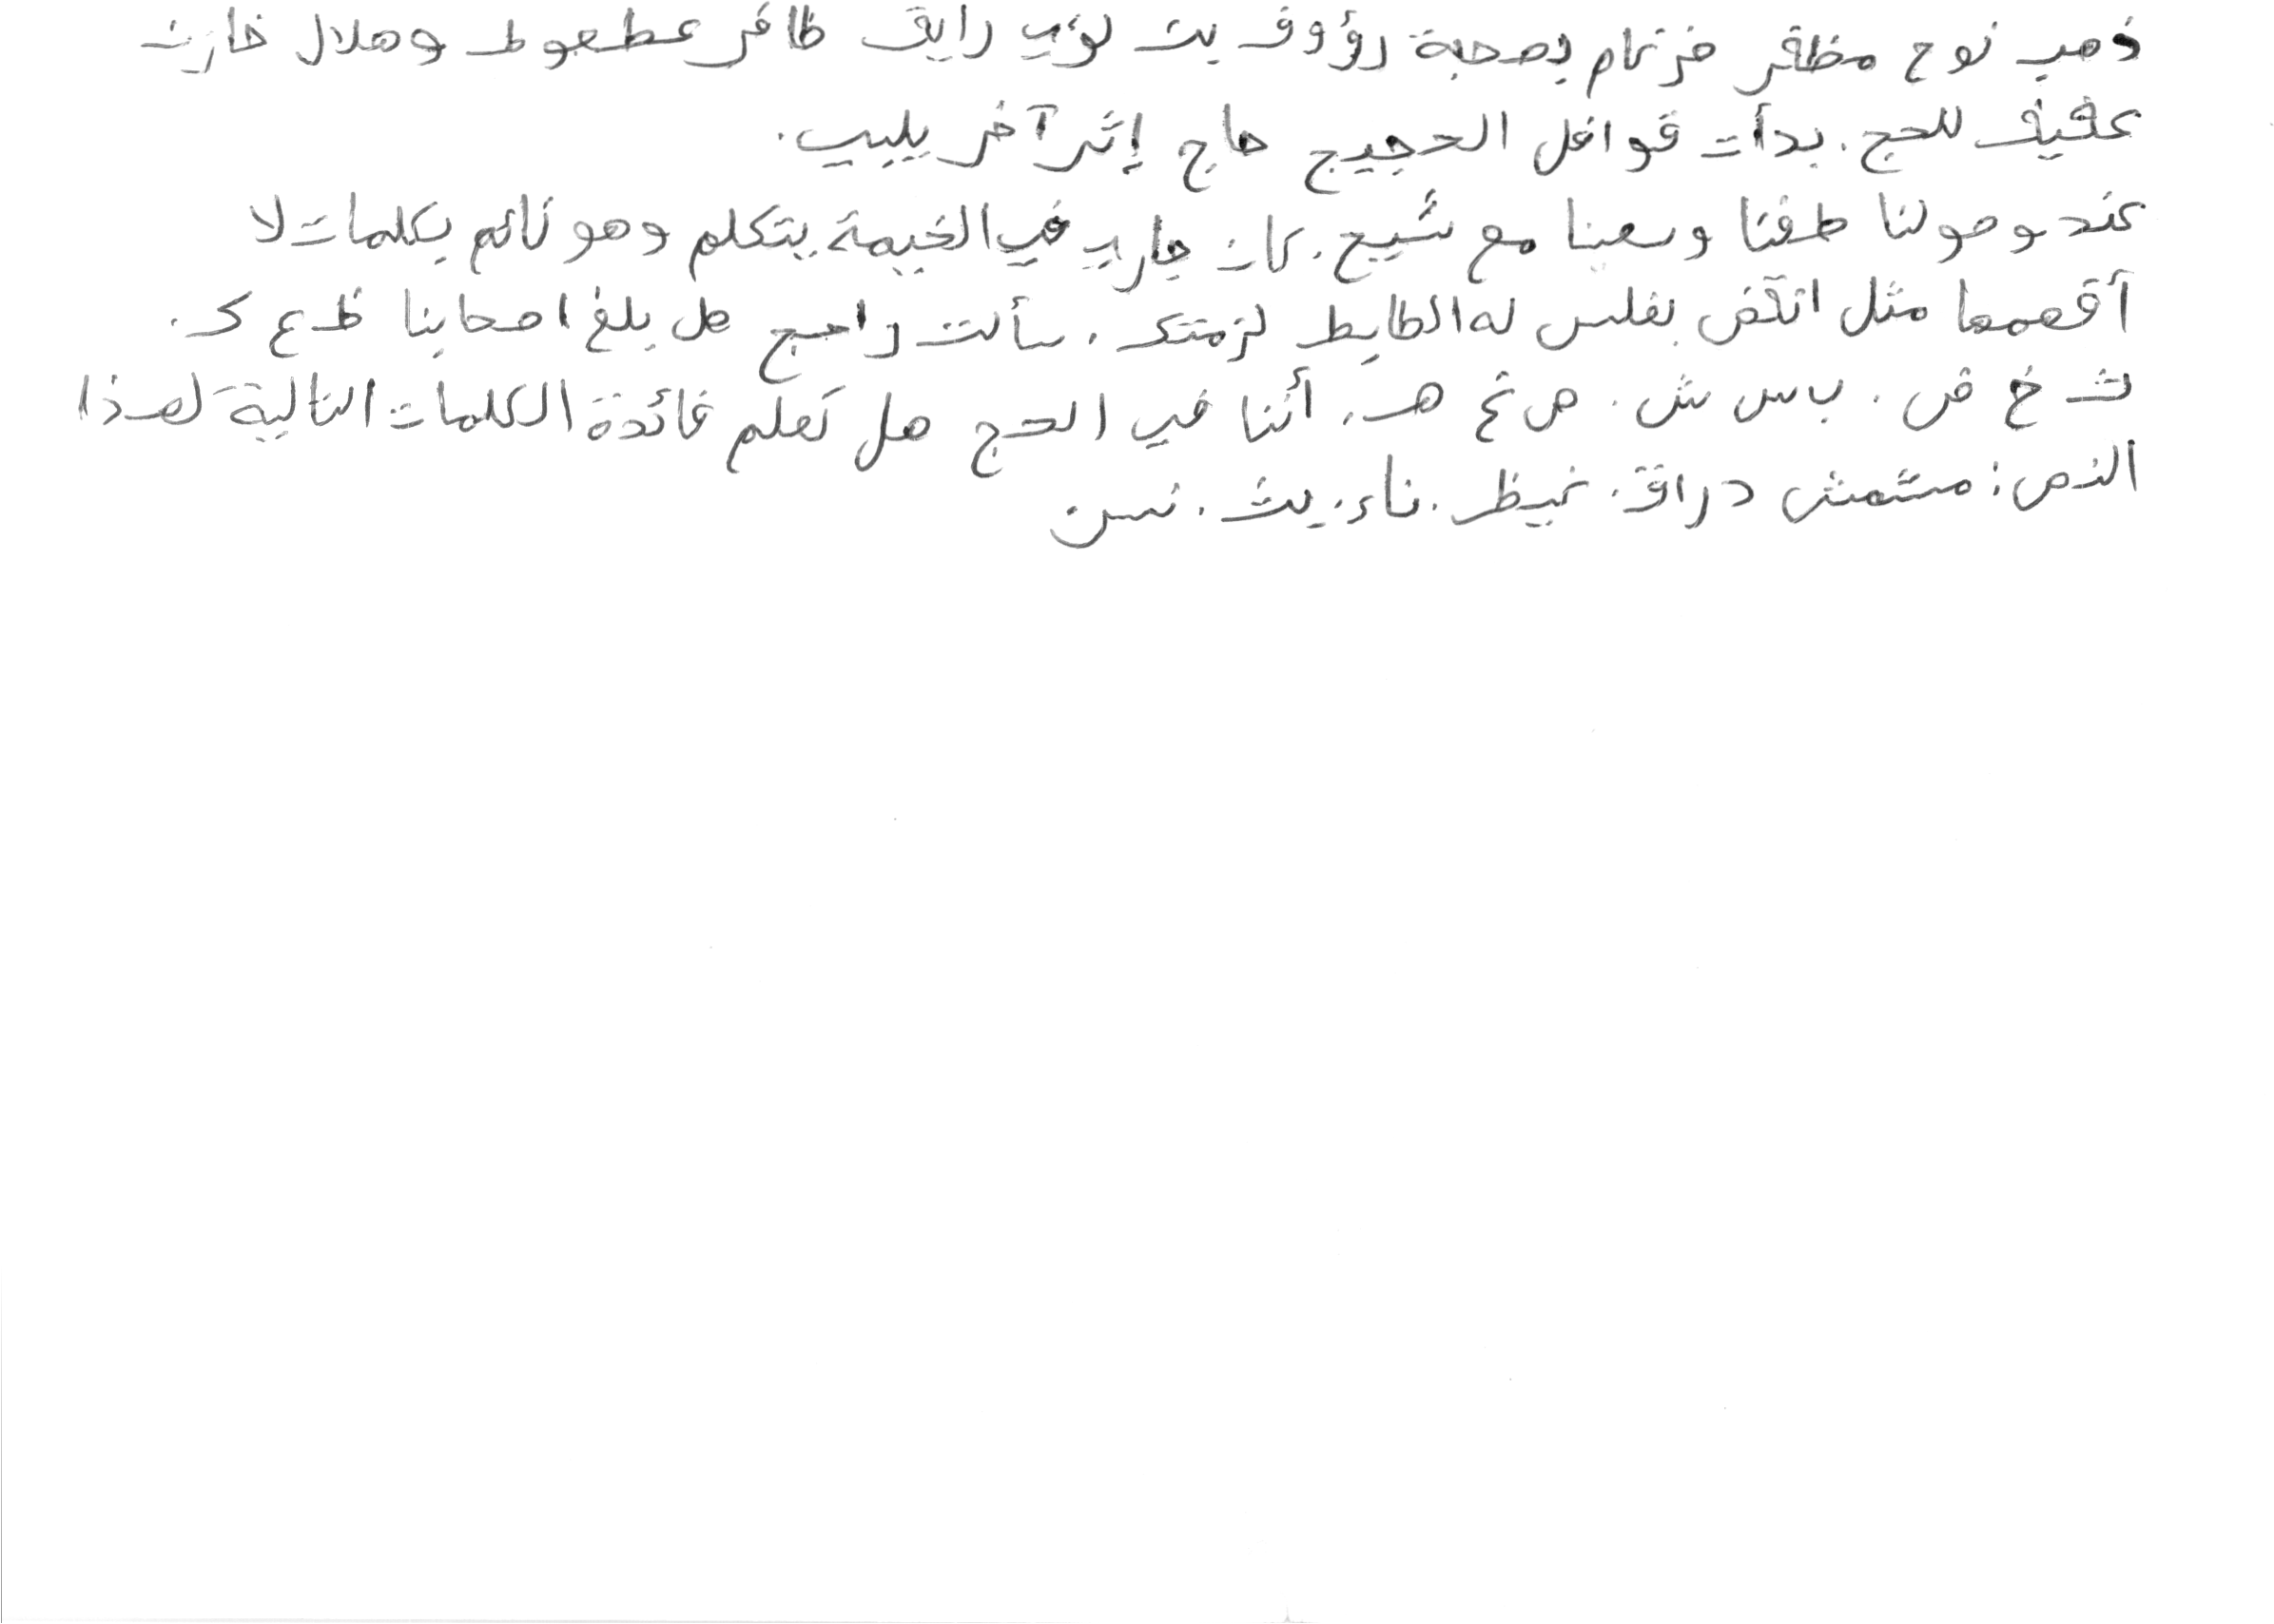 ذهب نوح مظفر ضرغام بصحبة رؤوف بن لؤي رايق ظافر عطعوط وهلال خازن
عفيف للحج. بدأت قوافل الحجيج حاج إثر آخر يلبي.
عند وصولنا طفنا وسعينا مع شيخ. كان جاري في الخيمة يتكلم وهو نائم بكلمات لا
أفهمها مثل اتكض بغلس له الطابط لزمتك. سألت راجح هل بلغ اصحابنا ظ ع ك.
ث خ ض. ب س ش. ص غ هـ. أثنا في الحج هل تعلم فائدة الكلمات التالية لهذا
النص: مشمش دراق. غيظ. ناء. يث. نسن